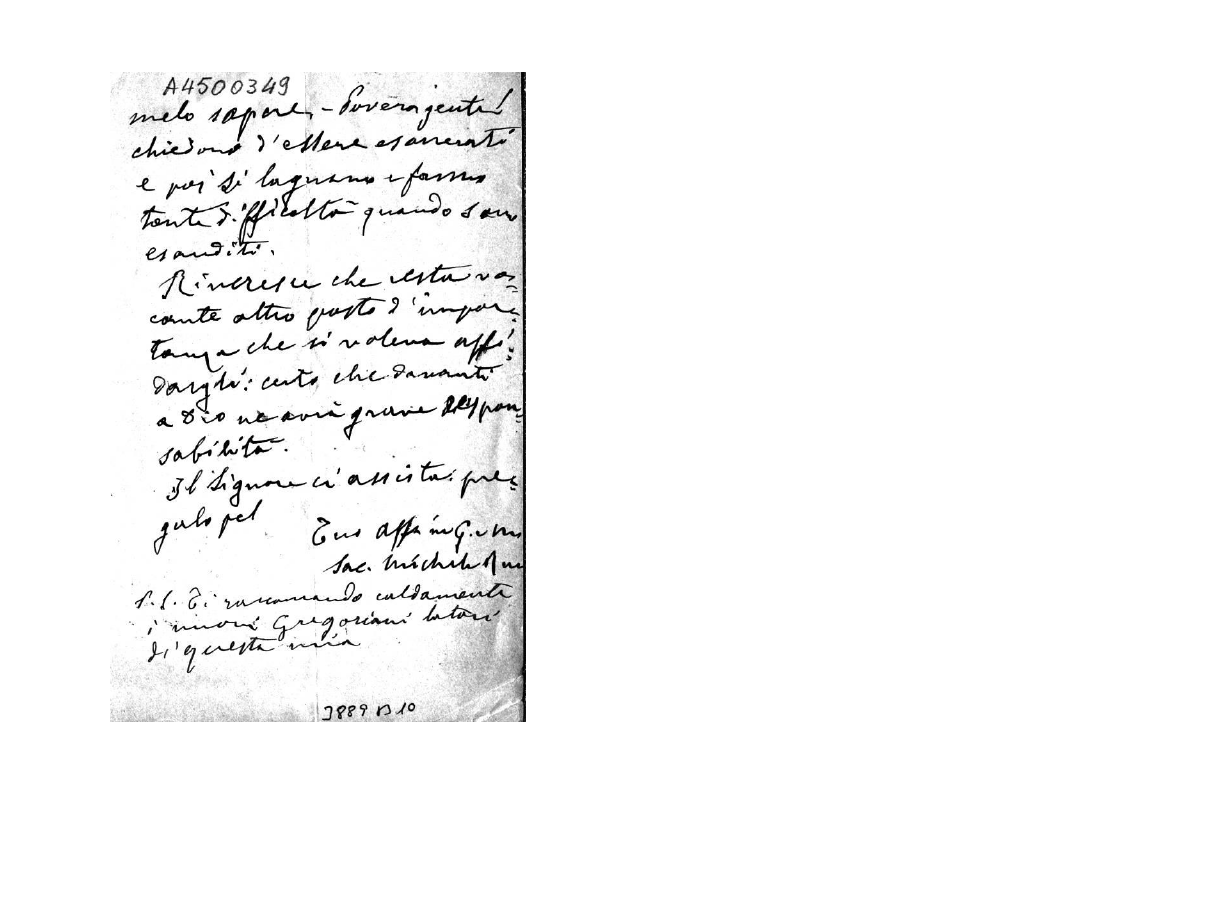 A4500349
melo sapere. - Povera gente!
chiedono d'essere esonerati
e poi si lagnano e fanno
tante difficoltà quando sono
esauditi.
Rincresce che resta va=
cante altro posto d'impor=
tanza che si voleva affi=
dargli: certo che davanti
a Dio ne avrà grave respon=
sabilità.
Il Signore ci assista: pre=
galo pel
Tuo aff in G. e M
Sac. Michele Rua
P.S. Ti raccomando caldamente
i nuovi Gregoriani latori
di questa mia
3889 B 10